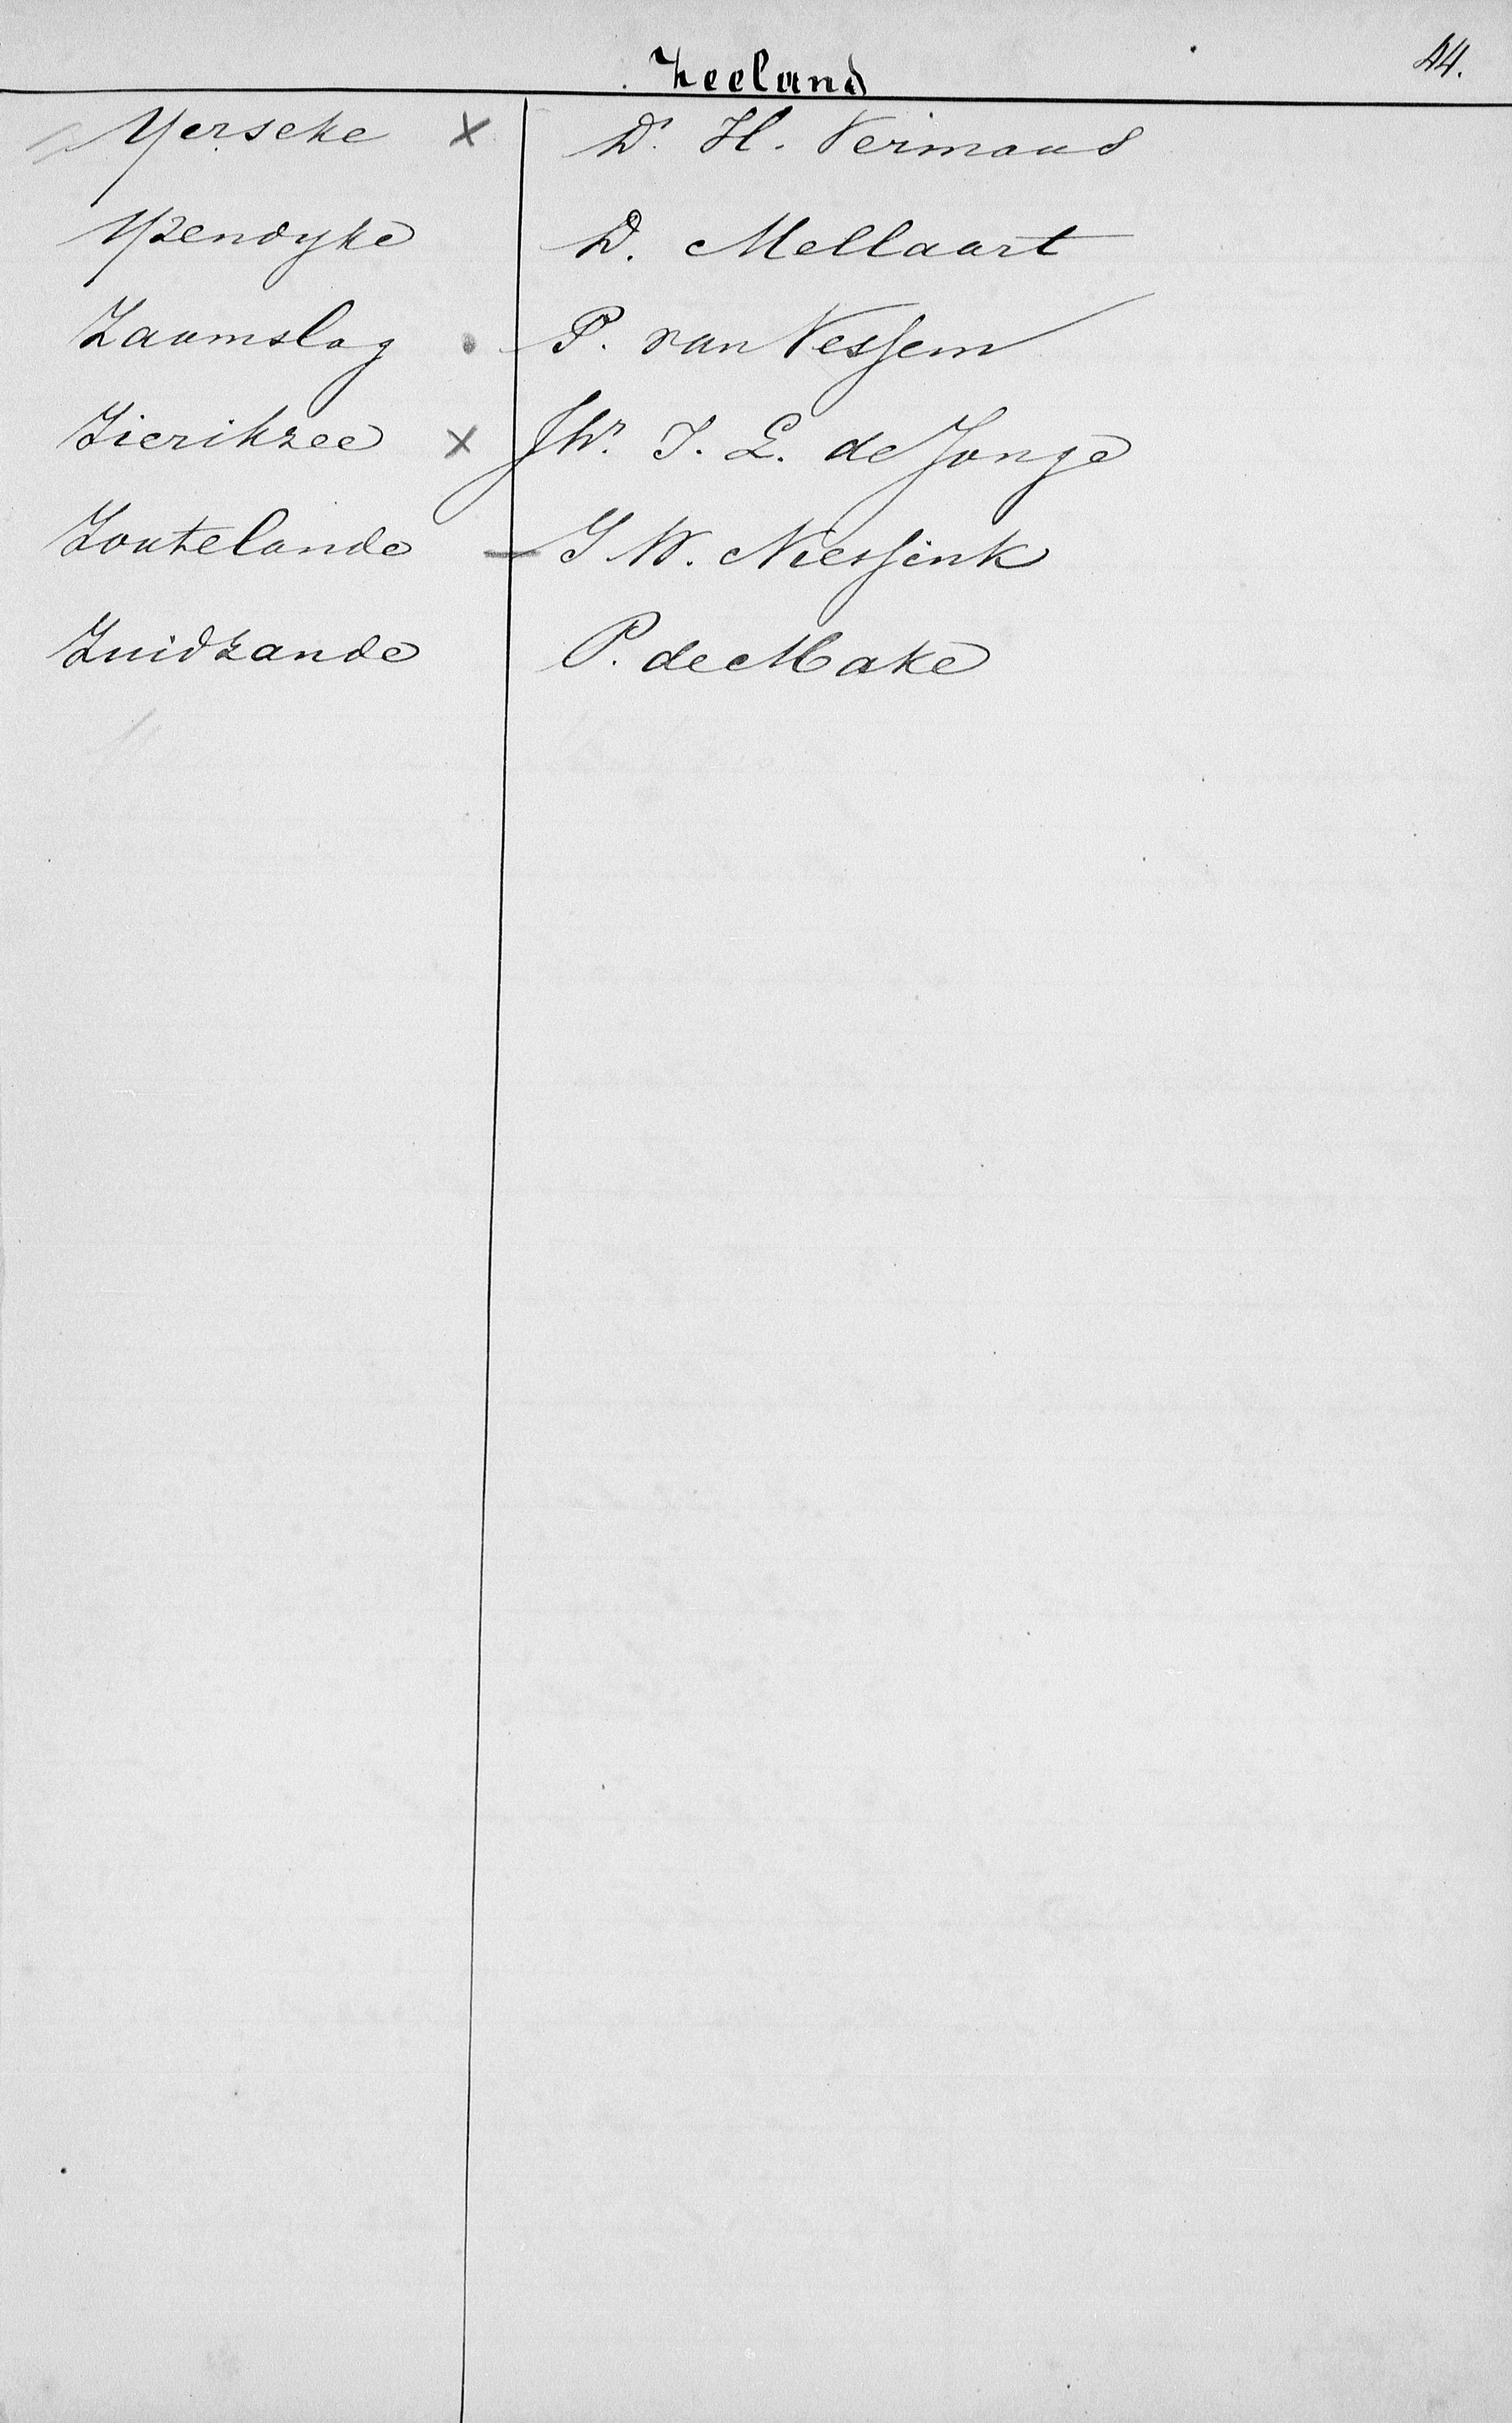 Zeeland
44.
Yerseke x Dr. H. Vermaas
Yzendyke D. Mellaart
Zaamslag P. van Vessem
Zierikzee x Jhr. J. L. de Jonge
Zoutelande - J W. Niessink
Zuidzande P. de Make